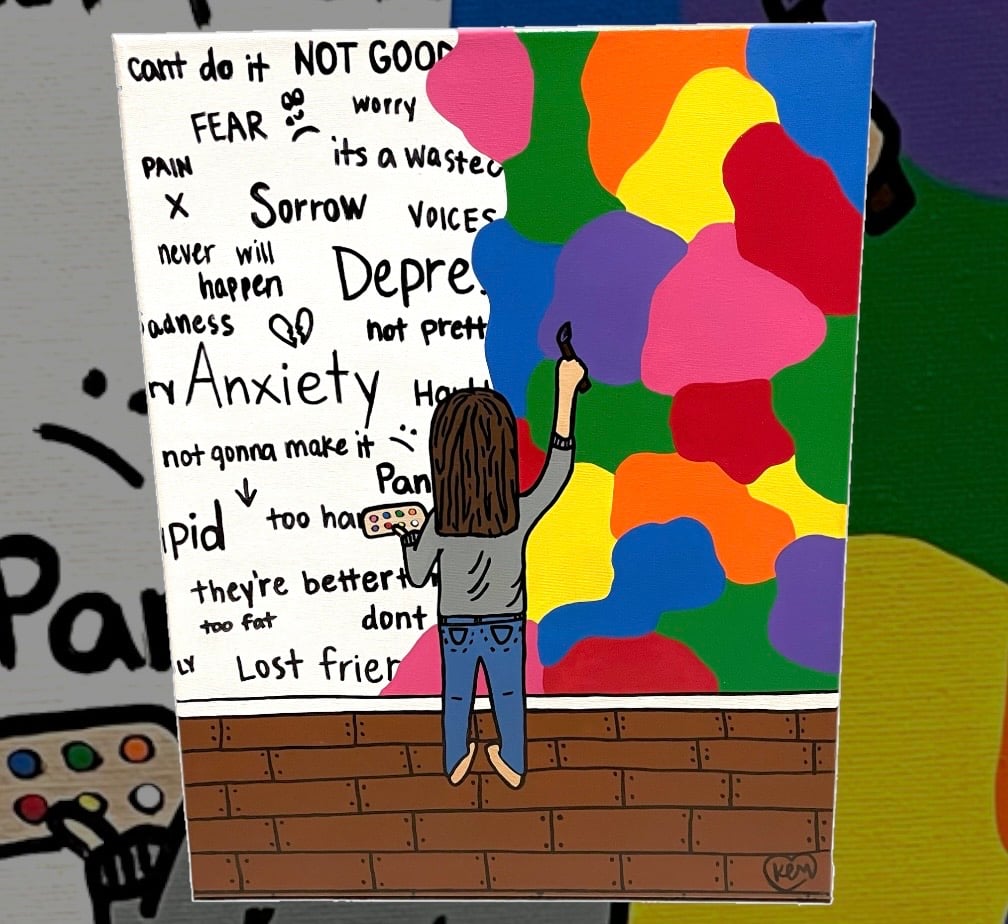 cant do it NOT GOOD
FEAR worry
PAIN its a waste
X Sorrow VOICES
never will
happen Depre
adness not prett
Anxiety Ha
not gonna make it
Pan
pid too har
they're better t
too fat dont
LY Lost frien
Kem
Par